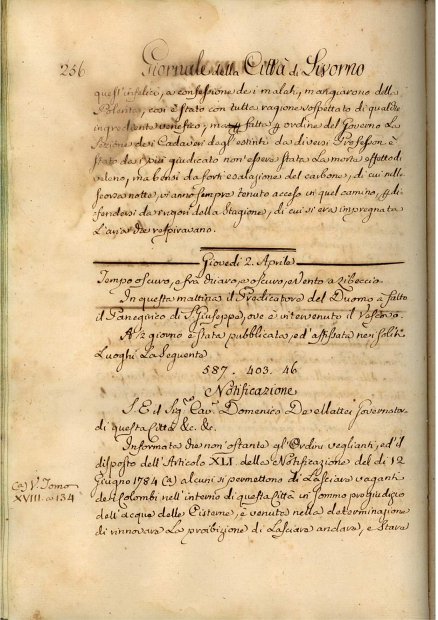 256 Giornale della Città di Livorno
quest'infelici, a confessione dei malati, mangiarono della
Polenta, così è stato con tutta ragione sospettato di qualche
ingrediente venefico, ma fatta ordine del Governo La
Sezione dei Cadaveri degl'estinti da diversi Professori è
stato dei più giudicato non essere stata La morte effetto di
veleno, ma bensì da forti esalazione del carbone, di cui nella
scorsa notte, vi anno sempre tenuto acceso in quel camino,
fendersi da rigori della Stagione, di cui si era impregnata
L'aria che respiravano.
Giovedì 2. Aprile
Tempo oscuro, e frà chiaro, e oscuro, e Vento a Libeccio.
In questa mattina il Predicatore del Duomo à fatto
il Panegirico di S. Giuseppe, ove è intervenuto il Vescovo.
A ½ giorno è stata pubblicata, ed' affissata nei soliti
Luoghi La seguente
587. 403. 46
Notificazione
S. E. il Sig. Cav. Domenico De Mattei Governatore
di questa Città &c. &c.
Informato che non 'ostante gl'Ordini veglianti, ed'il
disposto dell'Articolo XLI. della Notificazione del di 12
Giugno 1784 (a) alcuni si permettono di Lasciare vaganti
dei Colombi nell'interno di questa Città in sommo pregiudizio
dell'acqua delle Cisterne, è venuto nella determinazione
di rinnovare La proibizione di Lasciare andare, e stare
(a) V. Tomo
XVIII. a 134